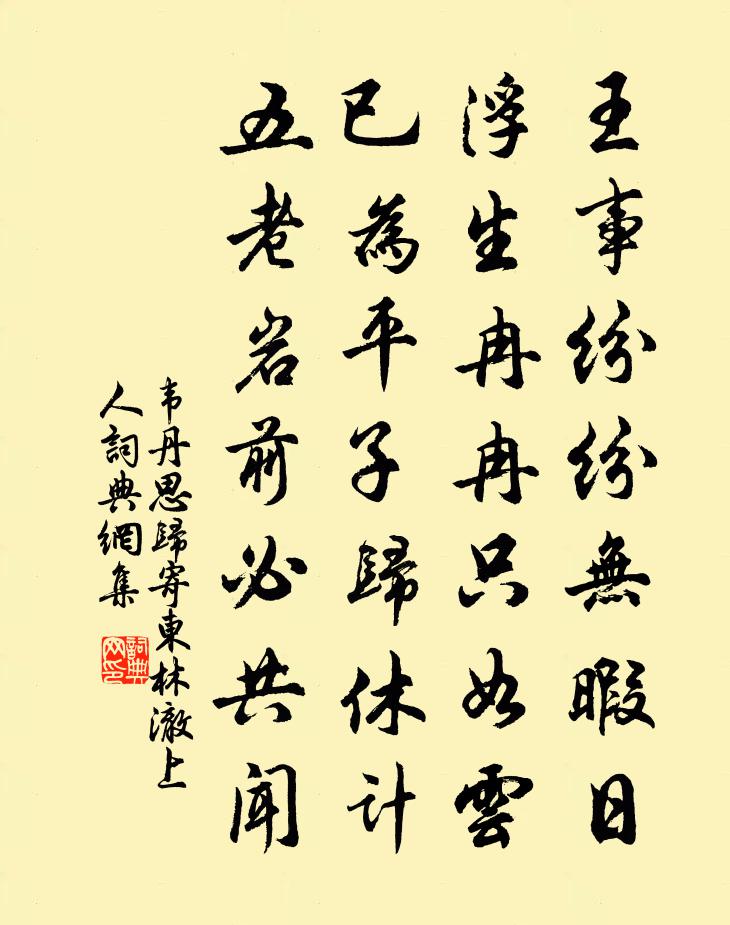 王事紛紛無暇日
浮生冉冉只如雲
已為平子歸休計
五老岩前必共聞
韦丹思歸寄東林澈上
人詞典網集
詞典
网印